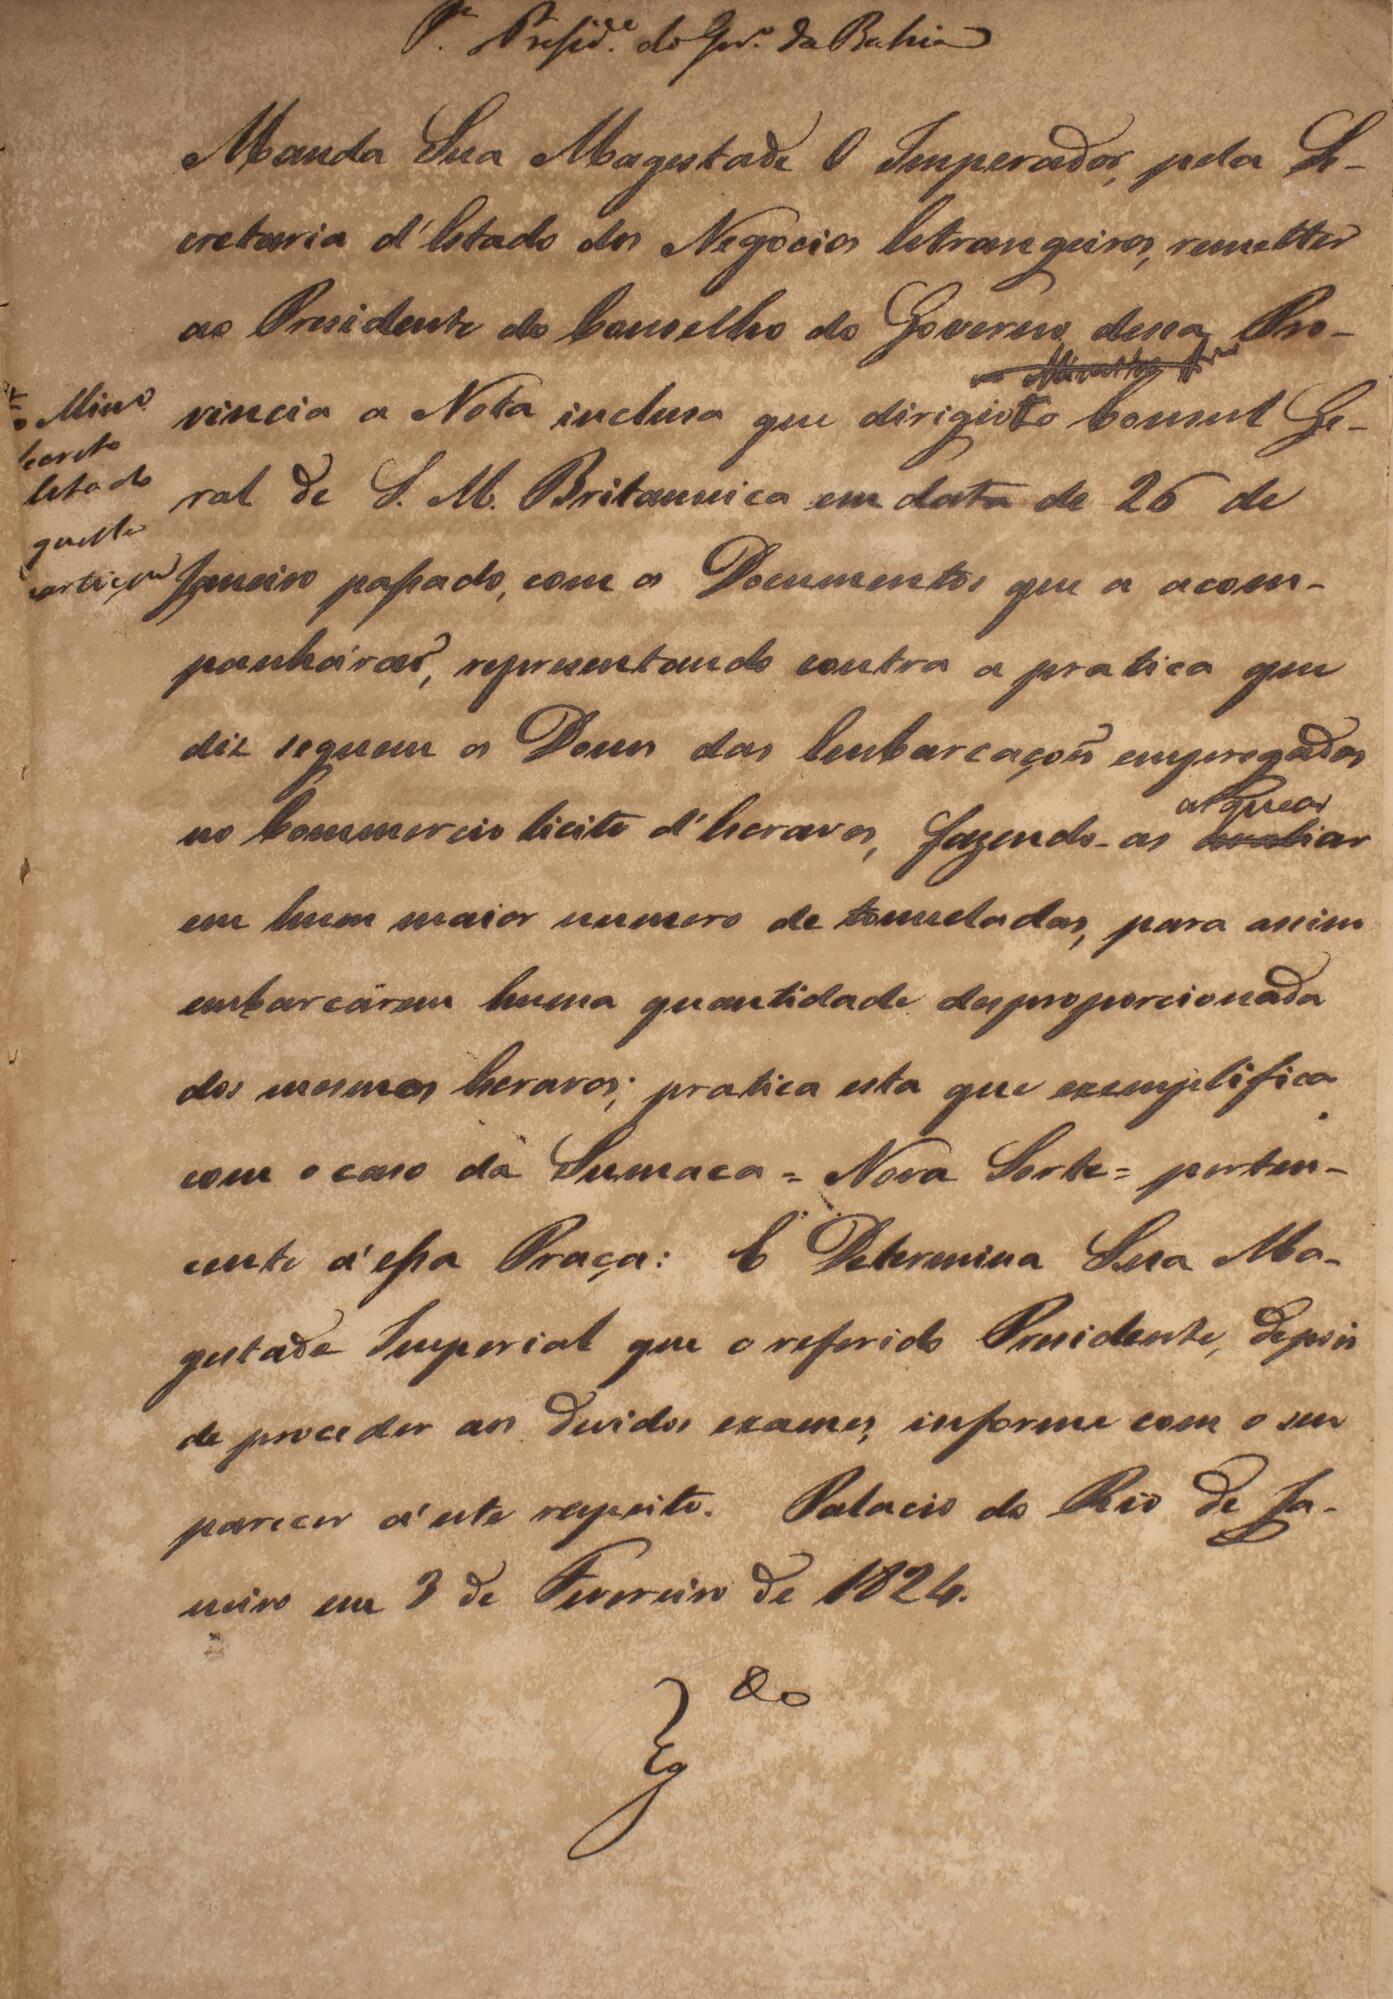 P.ª Presid.e do Gov.º da Bahia
Manda Sua Magestade O Imperador, pela Se-
cretaria d'Estado dos Negocios Estrangeiros, remetter
ao Presidente do Conselho do Governo dessa Pro-
vincia a Nota inclusa que dirigio o Consul Ge-
ral de S. M. Britannica em data de 26 de
Janeiro passado, com os Documentos que a acom-
panhárão, representando contra a pratica que
diz seguem os Donos das Embarcaçoẽs empregadas
alquear
no Commercio licito d'Escravos, fazendo-as avaliar
em hum maior numero de toneladas, para assim
embarcárem huma quantidade desproporcionada
dos mesmos Escravos; pratica esta que exemplifica
com o caso da Sumaca = Nova Sorte = perten-
cente á essa Praça: E Determina Sua Ma-
gestade Imperial que o referido Presidente, depois
de proceder aos devidos exames, informe com o seu
parecer á este respeito. Palacio do Rio de Ja-
neiro em 3 de Fevereiro de 1824.
ao Min.º
Secreto
Estado
quelle